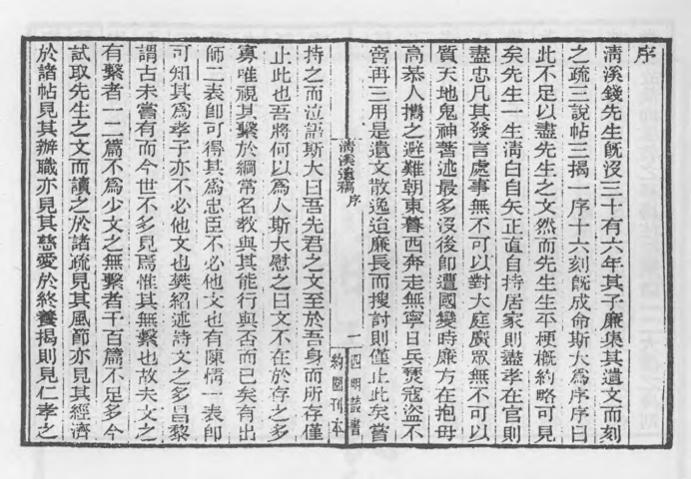 序
淸溪錢先生旣沒三十有六年其子廉集其遺文而刻
之疏三說帖三揭一序十六刻旣成命斯大爲序序曰
此不足以盡先生之文然而先生生平梗槪約略可見
矣先生一生淸白自矢正直自持居家則盡孝在官則
盡忠凡其發言處事無不可以對大庭廣眾無不可以
質天地鬼神著述最多沒後卽遭國變時廉方在抱母
高恭人攜之避難朝東暮西奔走無寧日兵燹寇盜不
啻再三用是遺文散逸迨廉長而搜討則僅止此矣嘗
淸溪遺稿 序
一
四明叢書
約園刊本
持之而泣語斯大曰吾先君之文至於吾身而所存僅
止此也吾將何以爲人斯大慰之曰文不在於存之多
寡唯視其繫於綱常名敎與其能行與否而已矣有出
師二表卽可得其爲忠臣不必他文也有陳情一表卽
可知其爲孝子亦不必他文也樊紹述詩文之多昌黎
謂古未嘗有而今世不多見焉惟其無繫也故夫文之
有繫者一二篇不爲少文之無繫者千百篇不足多今
試取先生之文而讀之於諸疏見其風節亦見其經濟
於諸帖見其辦職亦見其慈愛於終養揭則見仁孝之